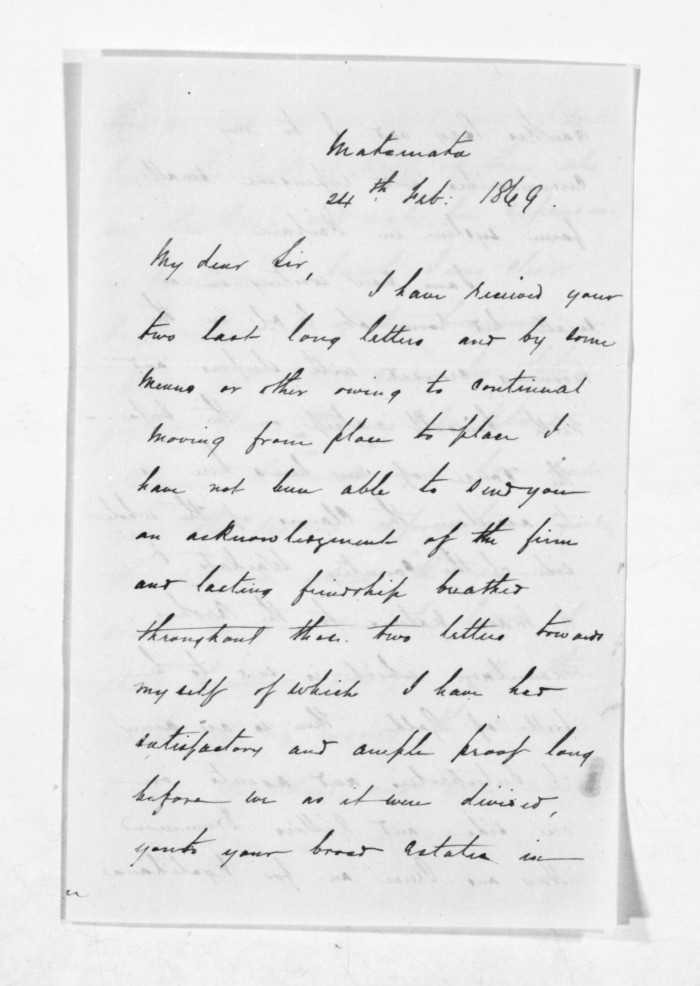 Matamata
24th Feb: 1869.
My dear Sir,
I have received your
two last long letters and by some
means or other owing to continual
moving from place to place I
have not been able to send you
an acknowledgment of the firm
and lasting friendship breathed
throughout these two letters towards
myself of which I have had
satisfactory and ample proof long
before we as it were divided,
you to your broad estates in